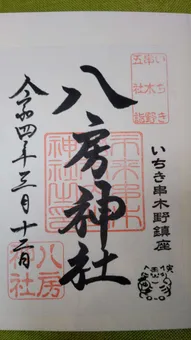 いちき
串木野
五社詣
いちき串木野鎮座
八房神社
八房
神社
令和四年三月十二日